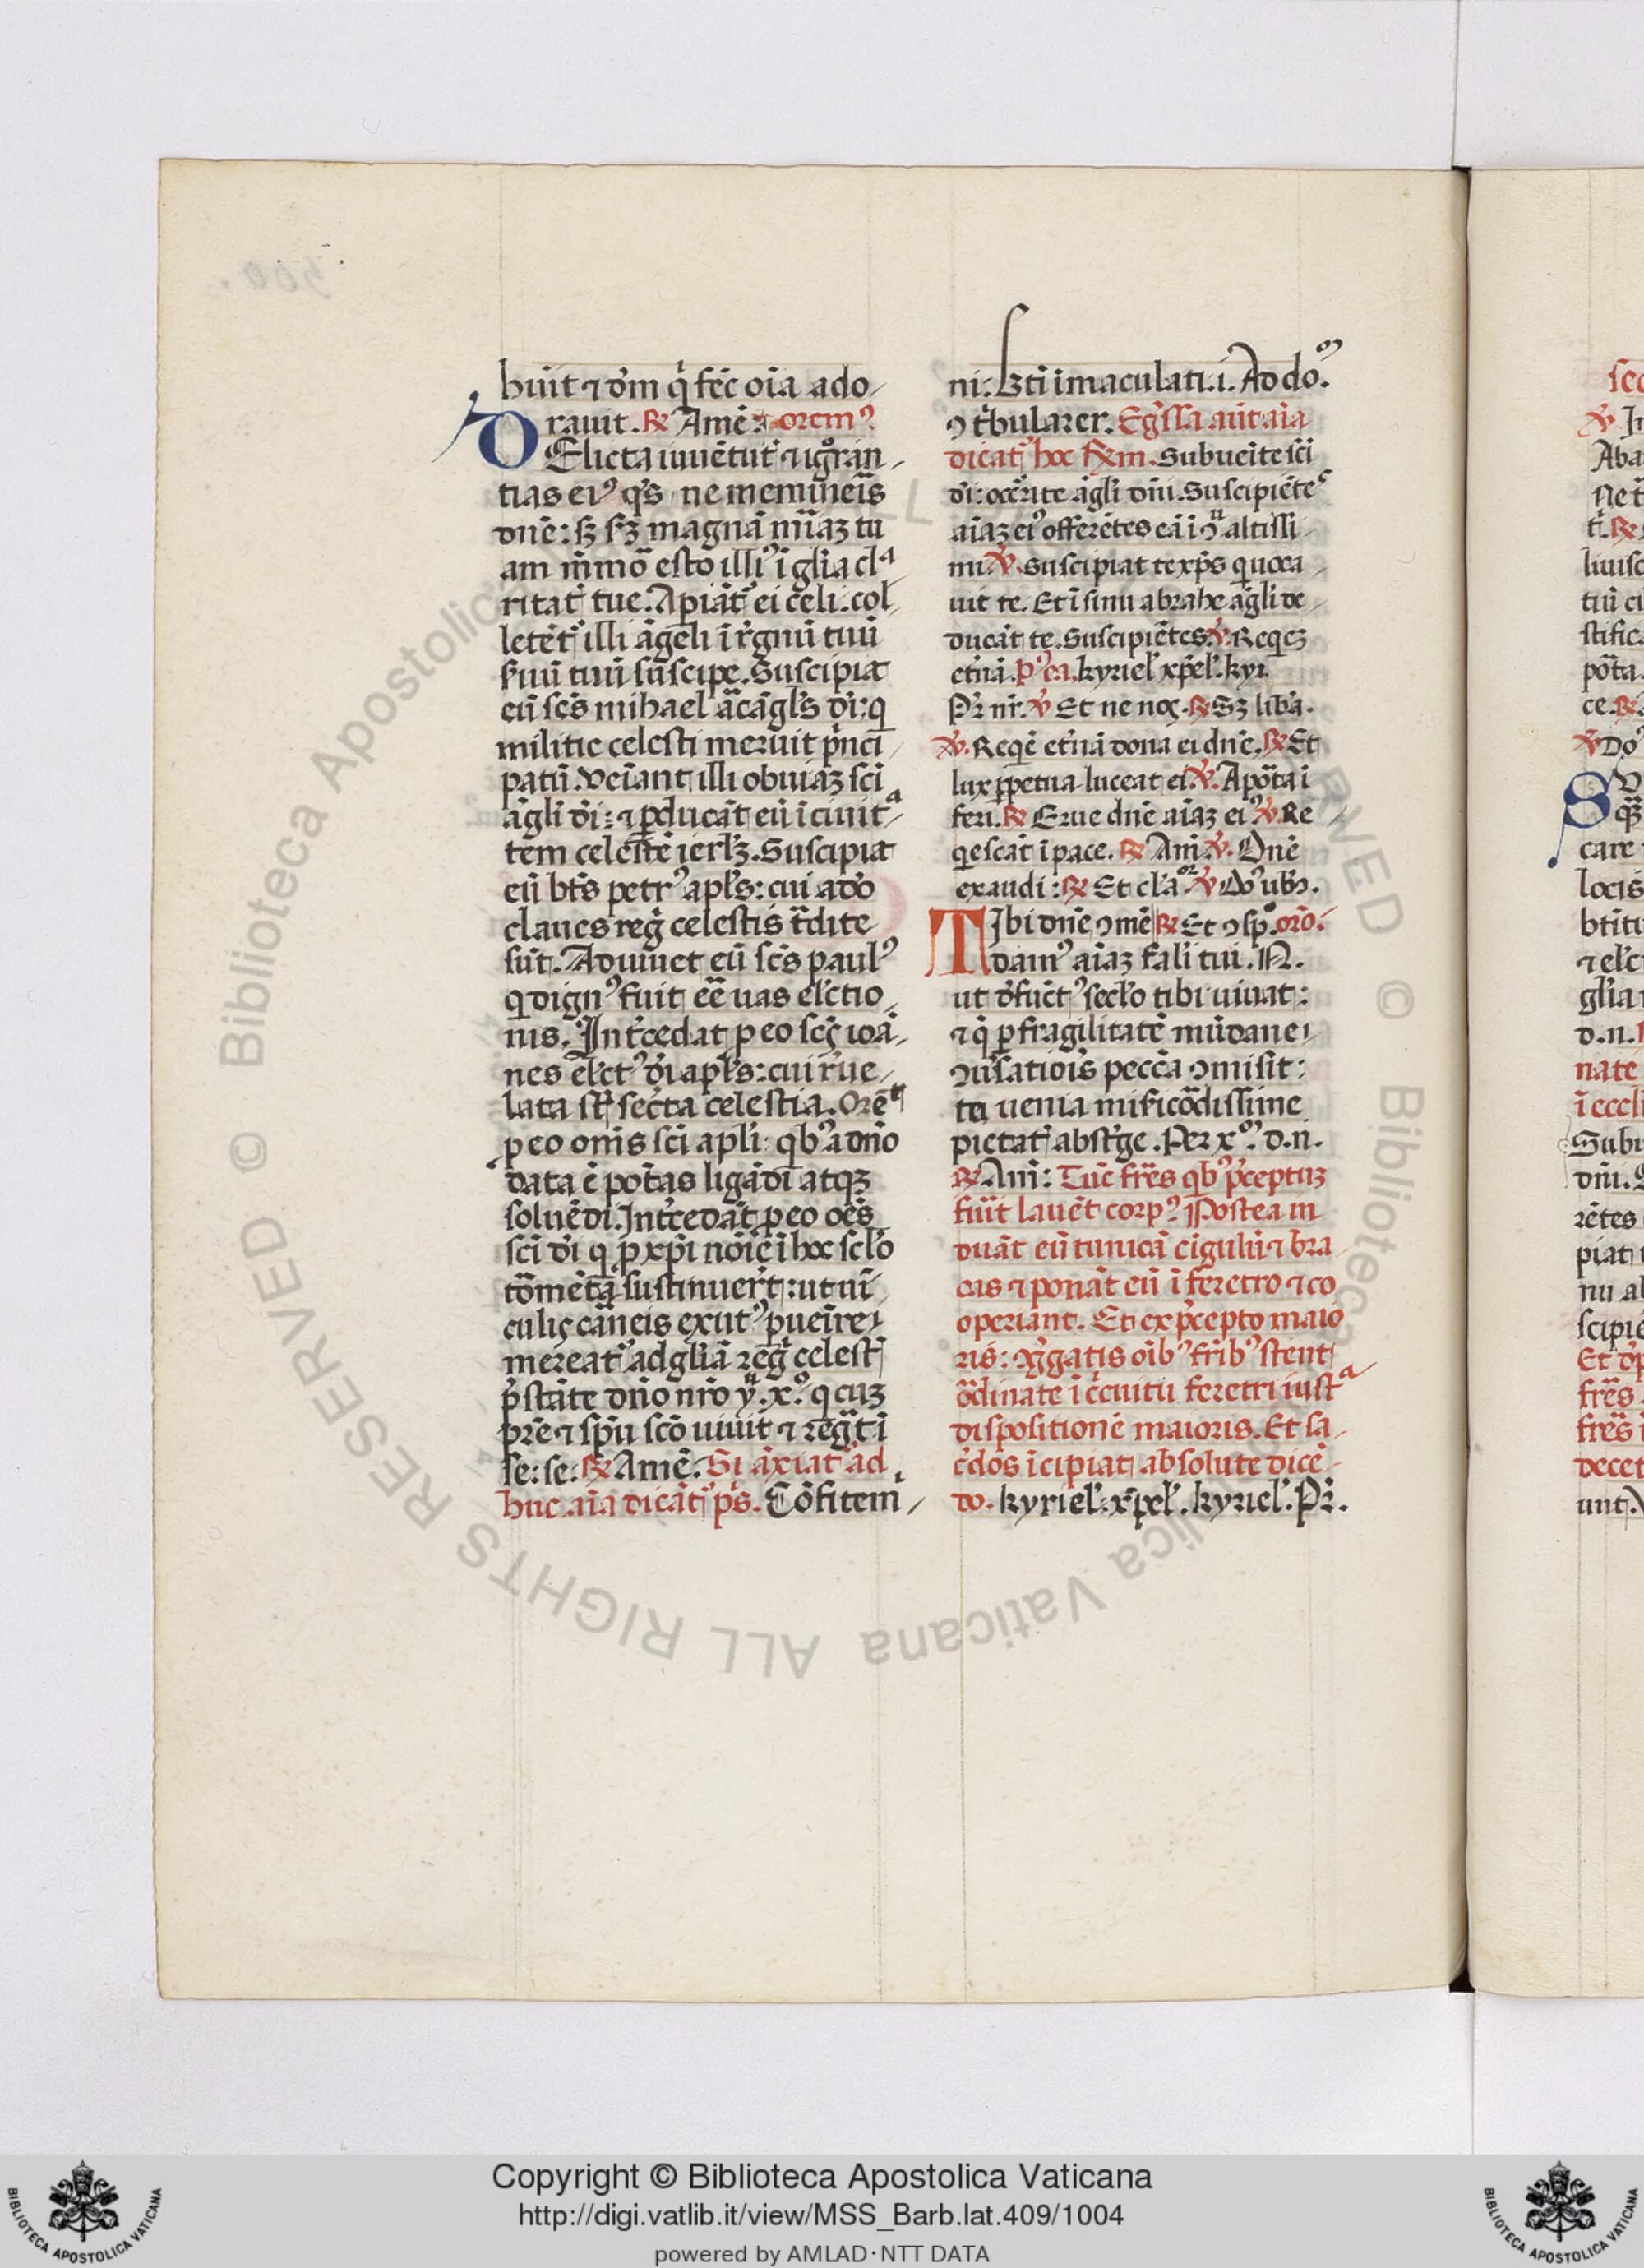 buit ⁊ dm̄ q̇ fēc oīa ado
rauit. ℟ Amē ⁊ orem⁹
DElicta iuuētut̄ ⁊ igrān
tias ei⁹ q̄s ne memineīs
dnē: sꝫ sꝫ magnā mīaꝫ tu
am mēmō esto illi⁹ ī glīa clᵃ
ritat̄ tue. Apiāt̄ ei celi. col
letēt̄ illi āgeli ī rēgnū tuū
fuū tuū susscipe. Suscipiat
eū scs̄ mihael ācāgls̄ dī: q
militie celesti meruit pͥnci
patū. Veiant illi obuiaꝫ scī
āgli dī: ⁊ pducāt eū ī ciuitᵃ
tem celestē ierlꝫ. Suscipiat
eū bts̄ petr⁹ apls̄: cui a dō
claues regͥ celestis t̄dite
sūt. Adiuuet eū scs̄ paul⁹
q dign⁹ fuit eē uas el̄ctio
nis. Int̄cedat p eo scs̄ ioā
nes el̄ct⁹ dī apls̄: cui r̄ue
lata st̄ secr̄ta celestia. Orēt
p eo om̄s scī apli: qb⁹ a dn̄o
data ē potās ligādi atqꝫ
soluēdi. Int̄cedāt p eo oēs
scī dī q p xpī nōīe ī hoc scl̄o
tōmēta sustinuer̄t: ut uī
culis cāneis exut⁹ pueīre
mereat̄ ad glīā regͥ celest̄
pͥstāte dn̄o nr̄o yᵘ. x⁰. q cuꝫ
pr̄e ⁊ spū scō uiuit ⁊ regᵃt ī
se: se: ℟ Amē. Si āxiat̄ ad
huc. aīa dicāt̄ ps̄. Cōfitemī
ni: Bt̄i īmaculati. i. Ad do⁹.
ꝯ tͥbularer. Egͤssa aūt aīa
dicat̄ hoc ℟m. Subueīte scī
dī: occͬrite āgli dn̄i. Suscipiēteˢ
aīaꝫ ei⁹ offerētes eā ī ꝯᵘ altissi
mi ℣. Suscipiat te xps̄ q uoca
uit te. Et ī sinu abrahe āgli de
ducāt te. Suscipiētes. ℣. Reqeꝫ
et̄nā. P⁹ ea. kyriel̄ xp̄el̄. kyr̄
Pr̄ nr̄. ℣ Et ne nos. ℟ Sꝫ lib̄a.
℣. Reqē et̄nā dona ei dn̄e. ℟ Et
lux ppetua luceat ei ℣. A pōta ī
feri. ℟ Erue dn̄e aīaꝫ ei⁹ ℣. Re
qescāt ī pace. ℟ Am̄. ℣. Dn̄e
exaudi: ℟ Et cl̄a ℣ Do⁹ ubꝫ.
TIbi dn̄e ꝯmē ℟ Et ꝯ sp̄. orō.
dam⁹ aīaꝫ fāli tui. N.
ut dfūct⁹ secl̄o tibi uiuat:
⁊ q̇ p fragilitatē mūdane
ꝯūsatiōis peccā ꝯmisit:
tu uenia mīficōdissime
pietat̄ abst̄ge. Per x⁰. d. n.
℟ Am̄: Tūc frēs qb⁹ pͥceptuꝫ
fūit lauēt corp⁹. Postea in
duāt eū tunicā cīgulū ⁊ bra
cas ⁊ ponāt eū ī feretro ⁊ co
operiant. Et ex pͥcepto maio
ris: ꝯgͤgatis oīb⁹ frīb⁹ stent
ōdinate ī cͥcuitu feretri iustᵃ
dispositionē maioris. Et sa
c̄dos īcipiat absolute dicē
do. kyriel̄. xp̄el̄. kyriel̄. Pr̄.
Copyright © Biblioteca Apostolica Vaticana
http://digi.vatlib.it/view/MSS_Barb.lat.409/1004
powered by AMLAD·NTT DATA